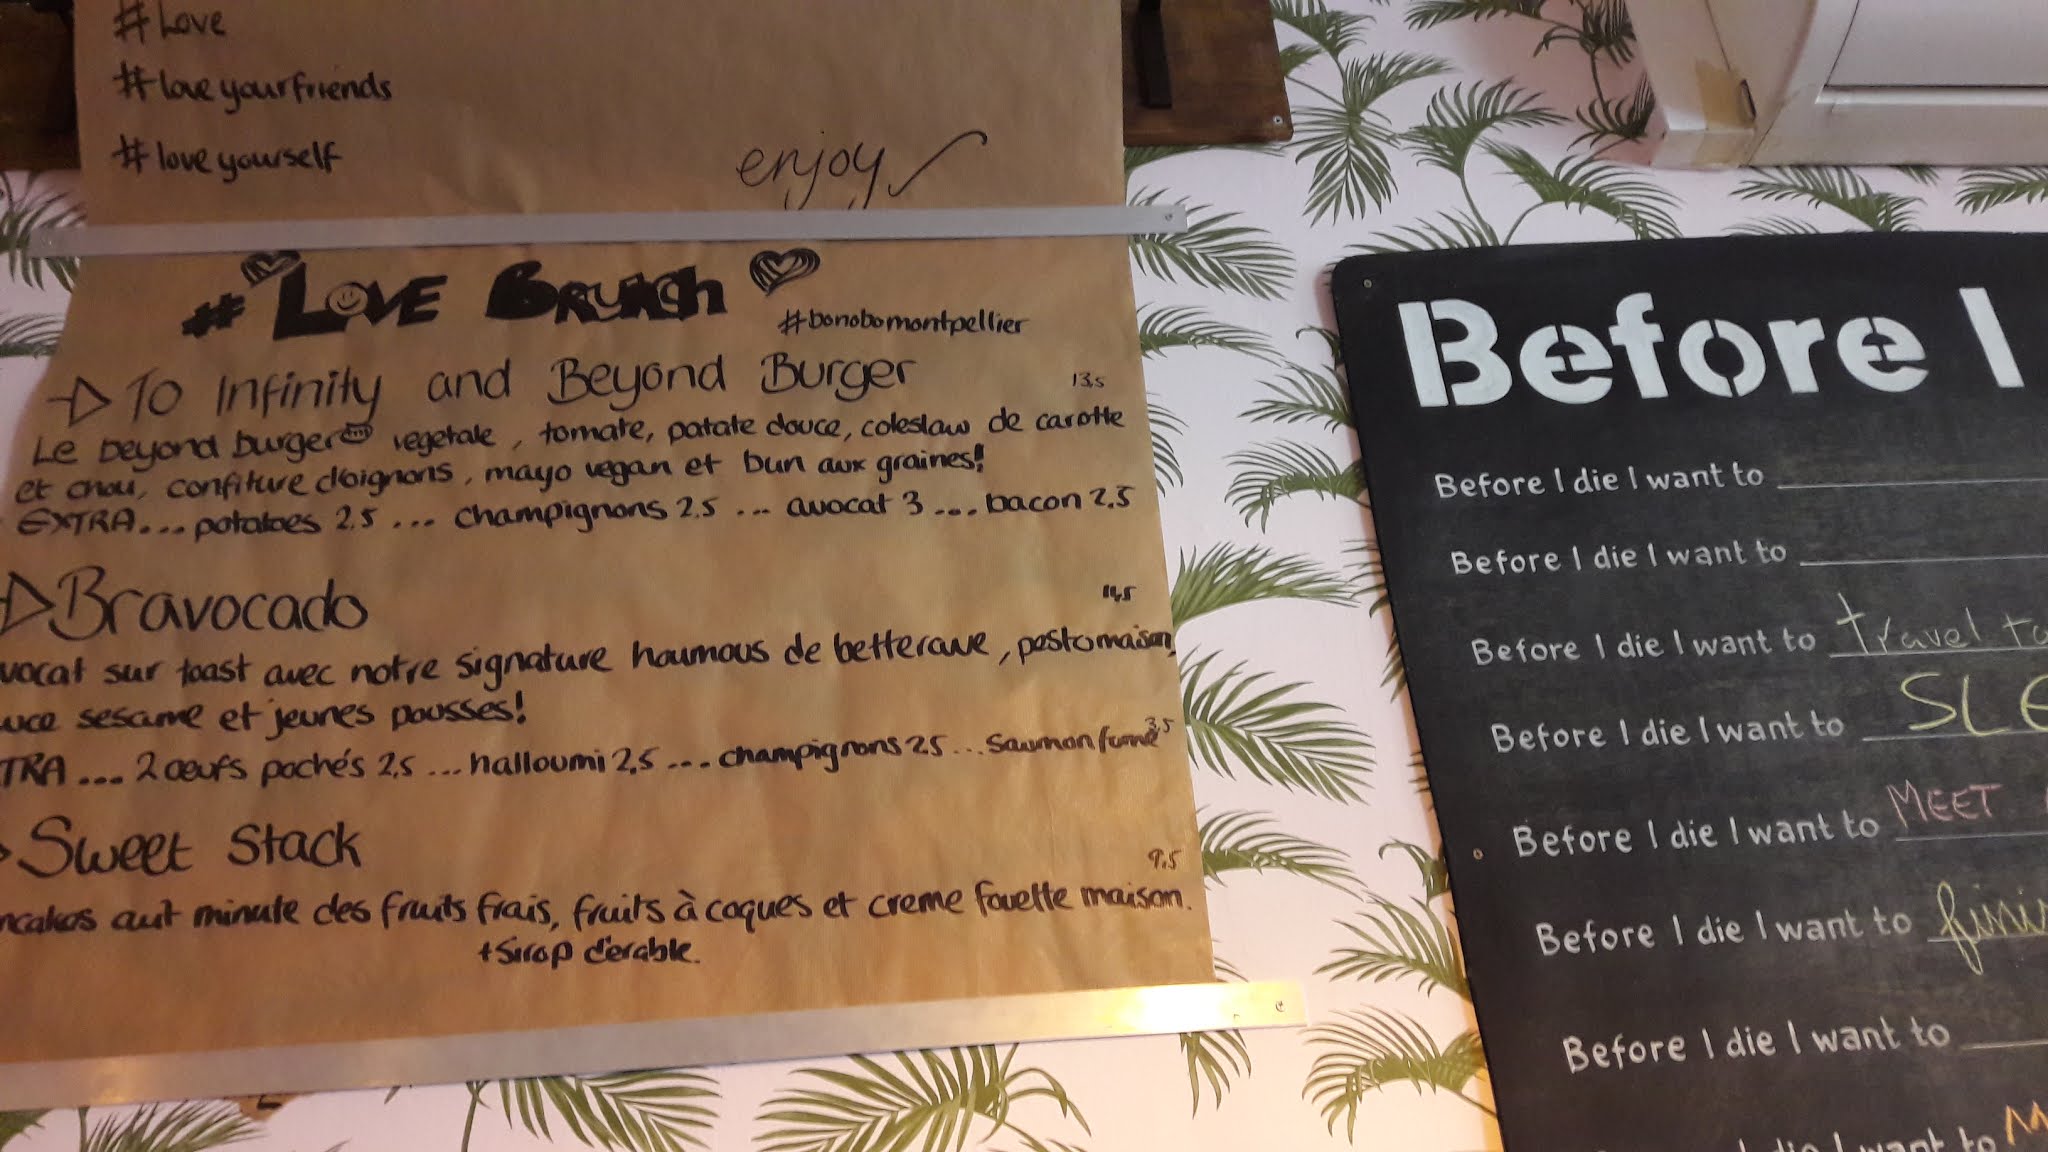 #Love
#loveyourfriends
#loveyourself
enjoy
#LOVE BRUNCH
#bonobomontpellier
To Infinity and Beyond Burger 13,5
Le beyond burger vegetale, tomate, patate douce, coleslaw de carotte
et chou, confiture d'oignons, mayo vegan et bun aux graines!
EXTRA... potatoes 2.5 ... champignons 2.5 ... avocat 3 ... bacon 2,5
Bravocado
vocat sur toast avec notre signature houmous de betterave, pesto maison,
uce sesame et jeunes pousses!
TRA ... 2 œufs pochés 2,5 ... halloumi 2,5 ... champignons 2.5 ... saumon fumé 3,5
Sweet Stack 9,5
ncakes aut minute des fruits frais, fruits à coques et creme fouette maison.
+ Sirop d'erable.
Before I
Before I die I want to
Before I die I want to
Before I die I want to travel to
Before I die I want to SLE
Before I die I want to MEET
Before I die I want to finis
Before I die I want to
I die I want to M